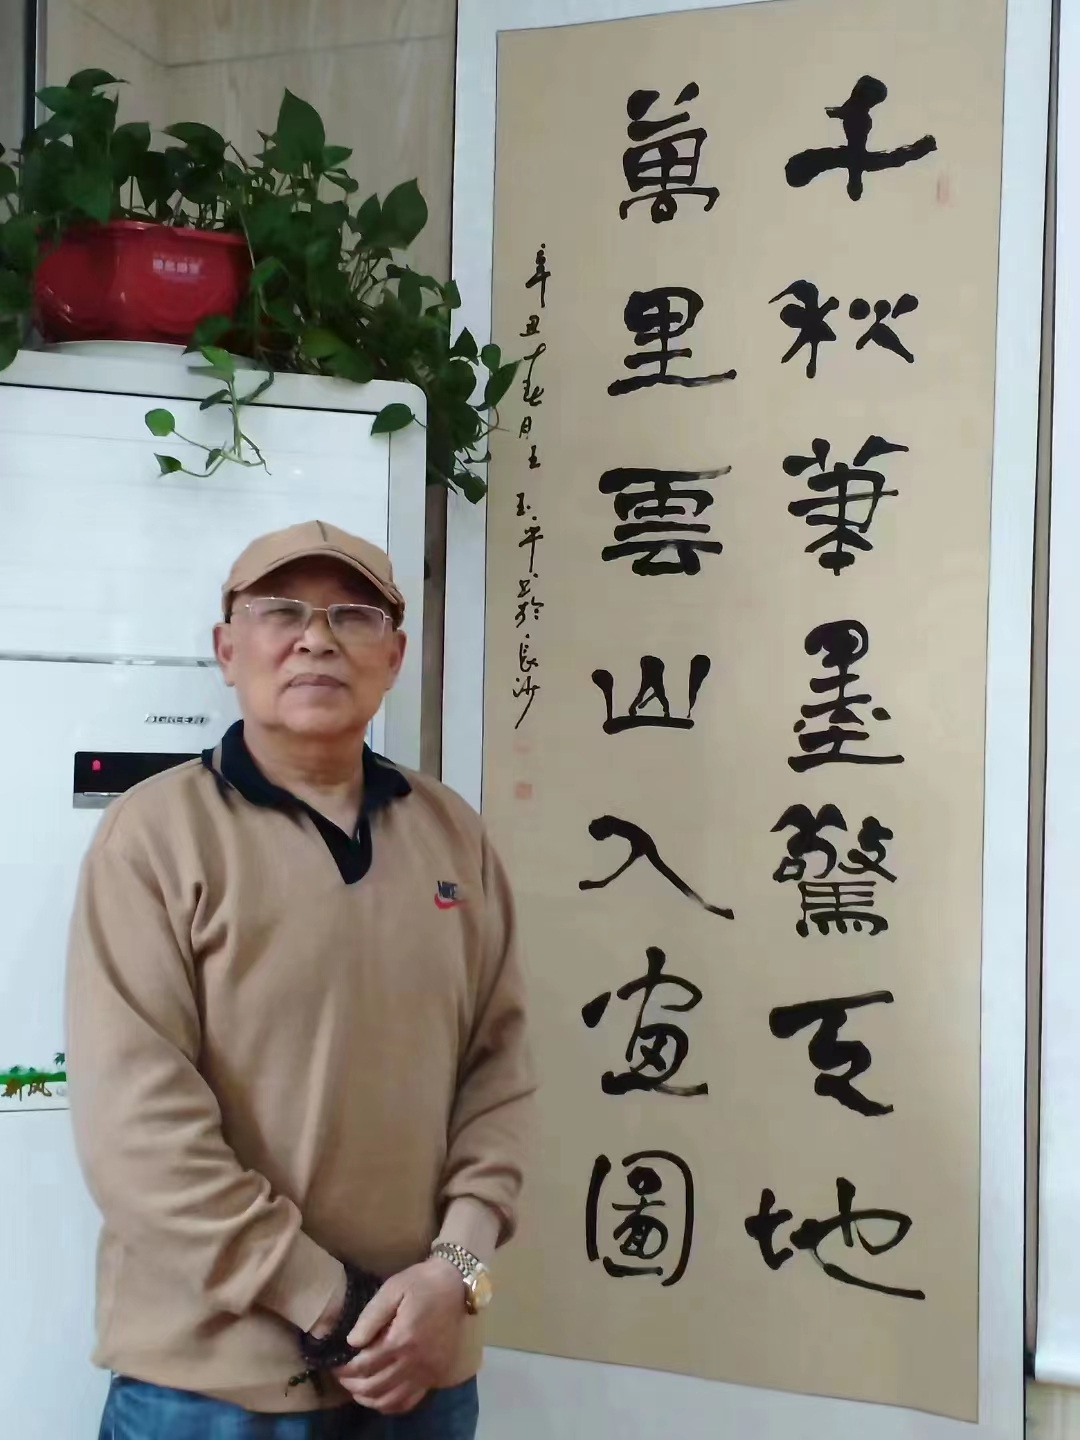 千秋筆墨驚天地
萬里雲山入畫圖
辛丑春月王玉平书於長沙
GREE
NIKE
新风